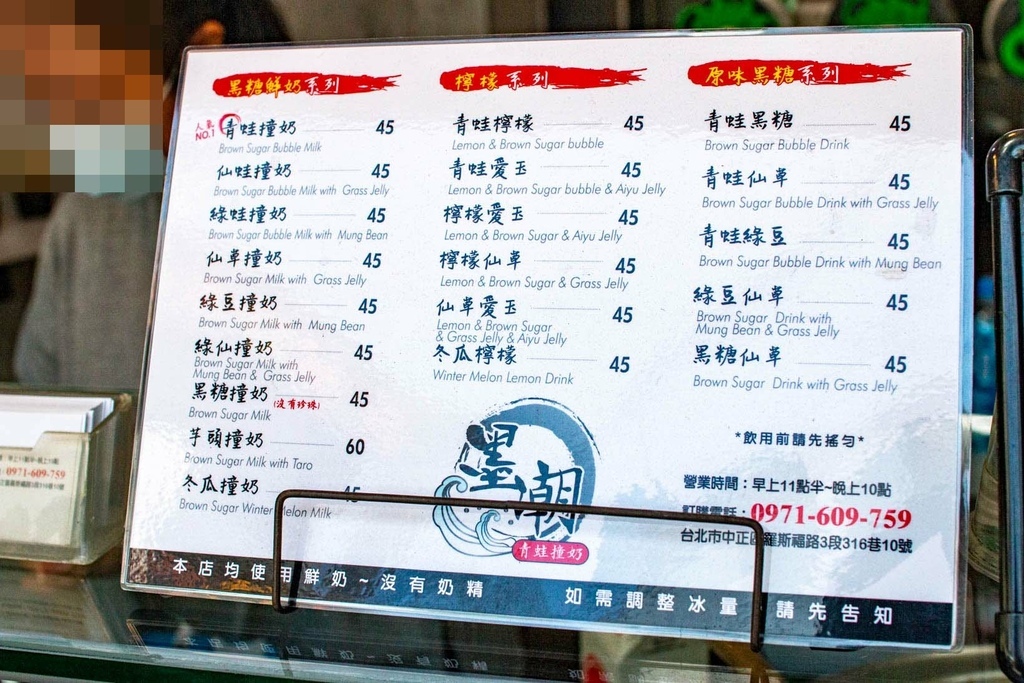 黑糖鮮奶系列
人氣
NO.1
青蛙撞奶 45
Brown Sugar Bubble Milk
仙蛙撞奶 45
Brown Sugar Bubble Milk with Grass Jelly
綠蛙撞奶 45
Brown Sugar Bubble Milk with Mung Bean
仙草撞奶 45
Brown Sugar Milk with Grass Jelly
綠豆撞奶 45
Brown Sugar Milk with Mung Bean
綠仙撞奶 45
Brown Sugar Milk with
Mung Bean & Grass Jelly
黑糖撞奶(沒有珍珠) 45
Brown Sugar Milk
芋頭撞奶 60
Brown Sugar Milk with Taro
冬瓜撞奶 45
Brown Sugar Winter Melon Milk
檸檬系列
青蛙檸檬 45
Lemon & Brown Sugar bubble
青蛙愛玉 45
Lemon & Brown Sugar bubble & Aiyu Jelly
檸檬愛玉 45
Lemon & Brown Sugar & Aiyu Jelly
檸檬仙草 45
Lemon & Brown Sugar & Grass Jelly
仙草愛玉 45
Lemon & Brown Sugar
& Grass Jelly & Aiyu Jelly
冬瓜檸檬 45
Winter Melon Lemon Drink
墨潮
青蛙撞奶
原味黑糖系列
青蛙黑糖 45
Brown Sugar Bubble Drink
青蛙仙草 45
Brown Sugar Bubble Drink with Grass Jelly
青蛙綠豆 45
Brown Sugar Bubble Drink with Mung Bean
綠豆仙草 45
Brown Sugar Drink with
Mung Bean & Grass Jelly
黑糖仙草 45
Brown Sugar Drink with Grass Jelly
*飲用前請先搖勻*
營業時間：早上11點半~晚上10點
訂購電話：0971-609-759
台北市中正區羅斯福路3段316巷10號
本店均使用鮮奶~沒有奶精 如需調整冰量 請先告知
0971-609-759